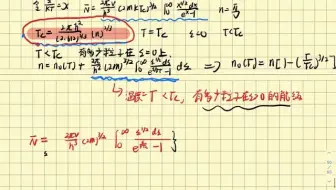 令 ε/kT = x N̄ = 2πV/h³ (2mkTc)^{3/2} ∫₀^∞ x^{1/2}dx/(e^x-1) n = N̄/V
Tc = 2πħ²/(2.612)^{2/3} (n)^{2/3} T=Tc ε=0 T<Tc
T<Tc 有多少粒子在 ε=0 上
n = n₀(T) + 2π/h³ (2m)^{3/2} ∫₀^∞ ε^{1/2}/(-1) dε ⇒ n₀(T) = n[1-(T/Tc)^{3/2}]
↳ 温度=T<Tc, 有多少粒子在 ε>0 的能级
N̄ = 2πV/h³ (2m)^{3/2} ∫₀^∞ ε^{1/2}dε/(-1) }